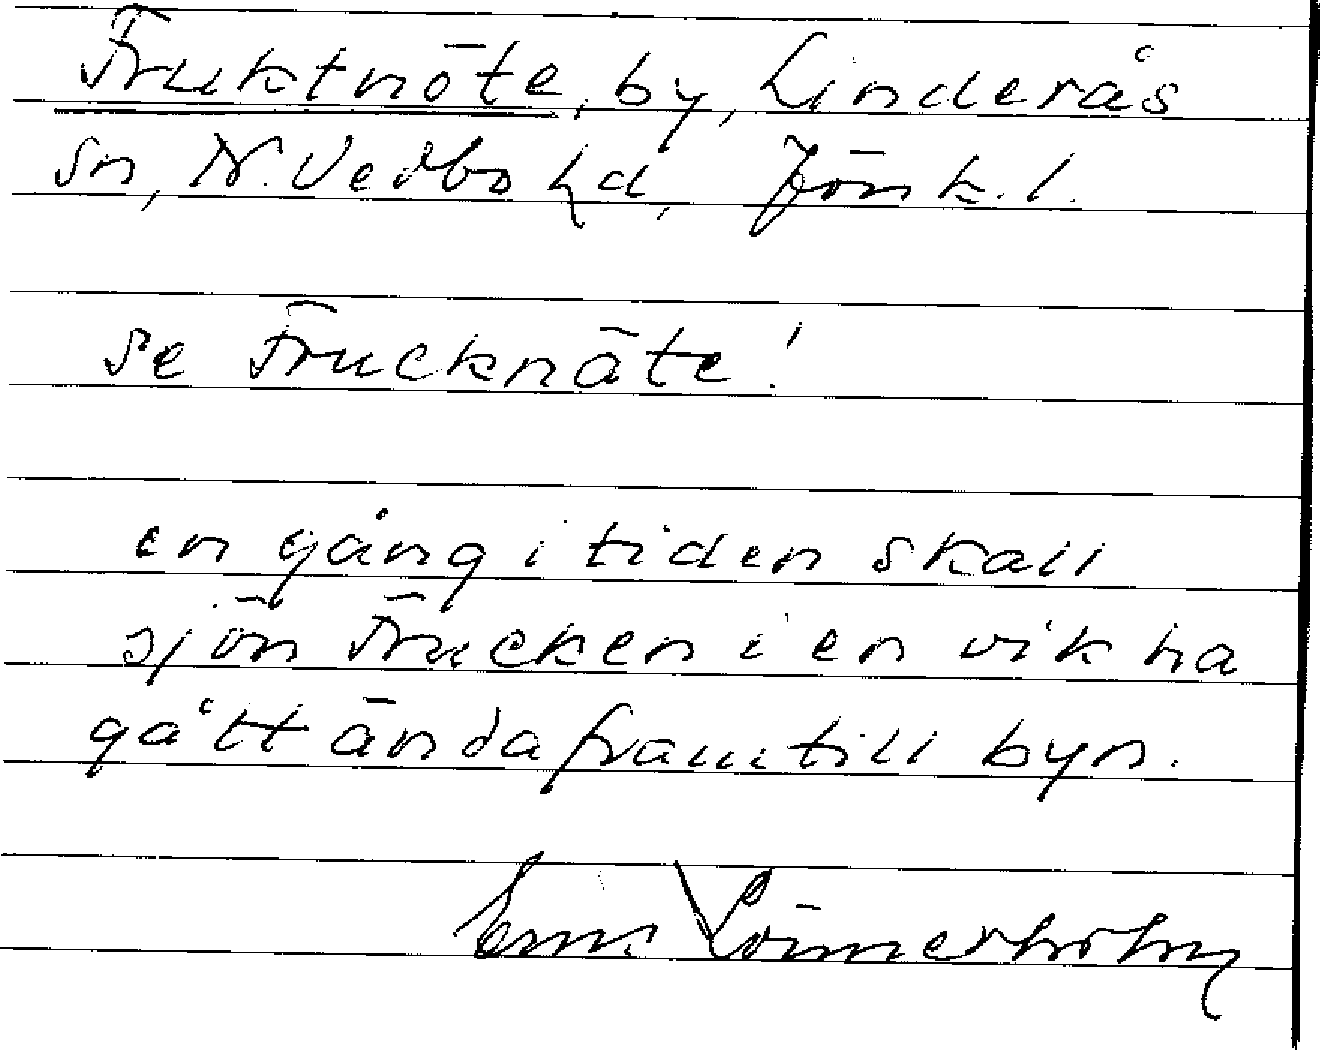 Fruktnöte, by, Linderås
sn, N. Vedbo hd, Jönk. l.
se Frucknäte!
en gång i tiden skall
sjön Frucken i en vik ha
gått ända fram till byn.